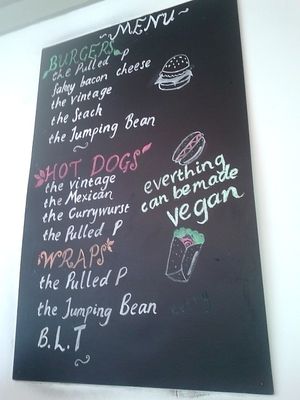 ~MENU~
BURGERS
the Pulled P
fakey bacon cheese
the vintage
the Stack
the Jumping Bean
HOT DOGS
the vintage
the Mexican
the Currywurst
the Pulled P
WRAPS
the Pulled P
the Jumping Bean
B.L.T
everthing
can be made
vegan